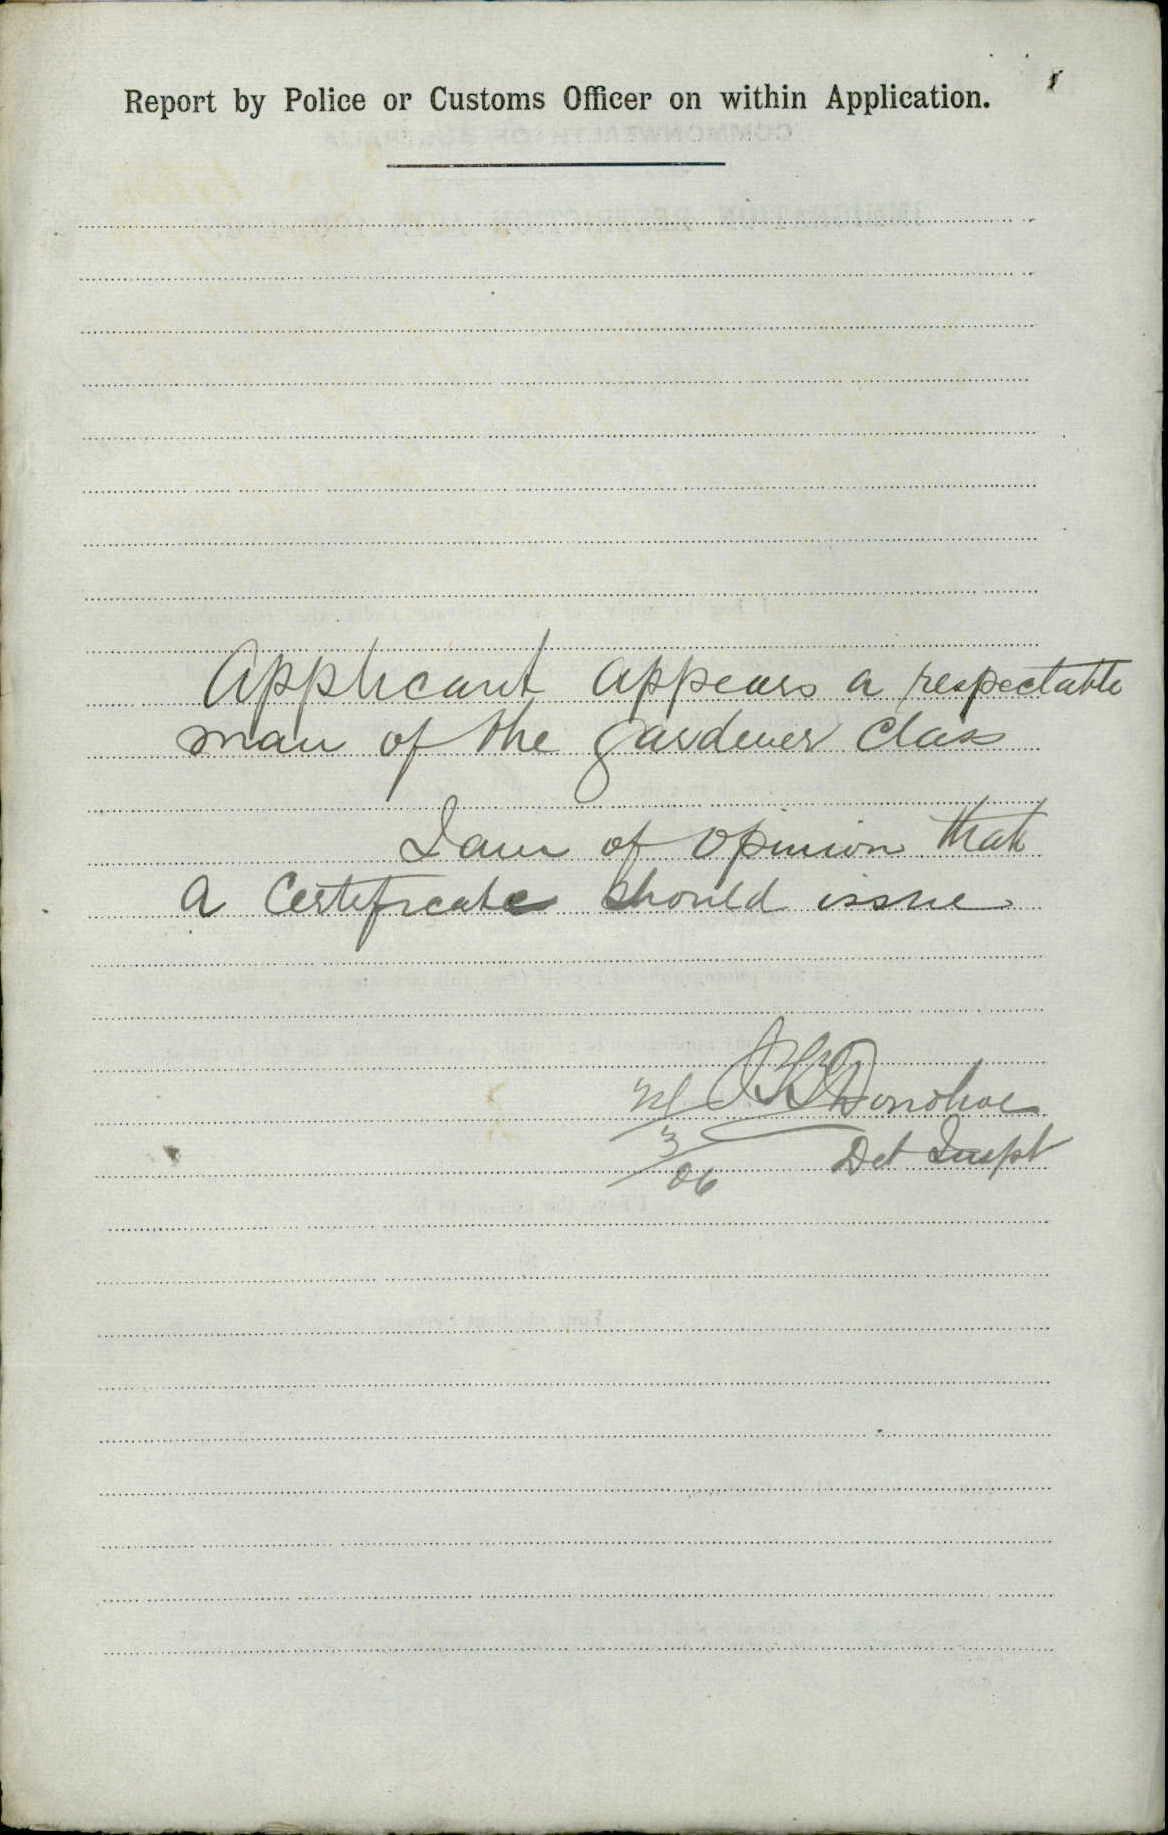 Report by Police or Customs Officer on within Application.
Applicant appears a respectable
man of the gardener class
I am of opinion that
a Certificate should issue
Donohoe
3
06
Det Inspt